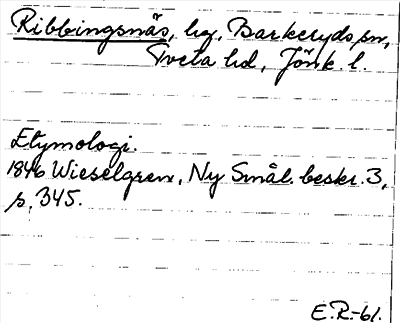 Ribbingsnäs, hg, Barkeryds sn,
Tveta hd, Jönk. l.
Etymologi.
1846 Wieselgren, Ny Smål. beskr. 3,
p. 345.
E.R.-61.